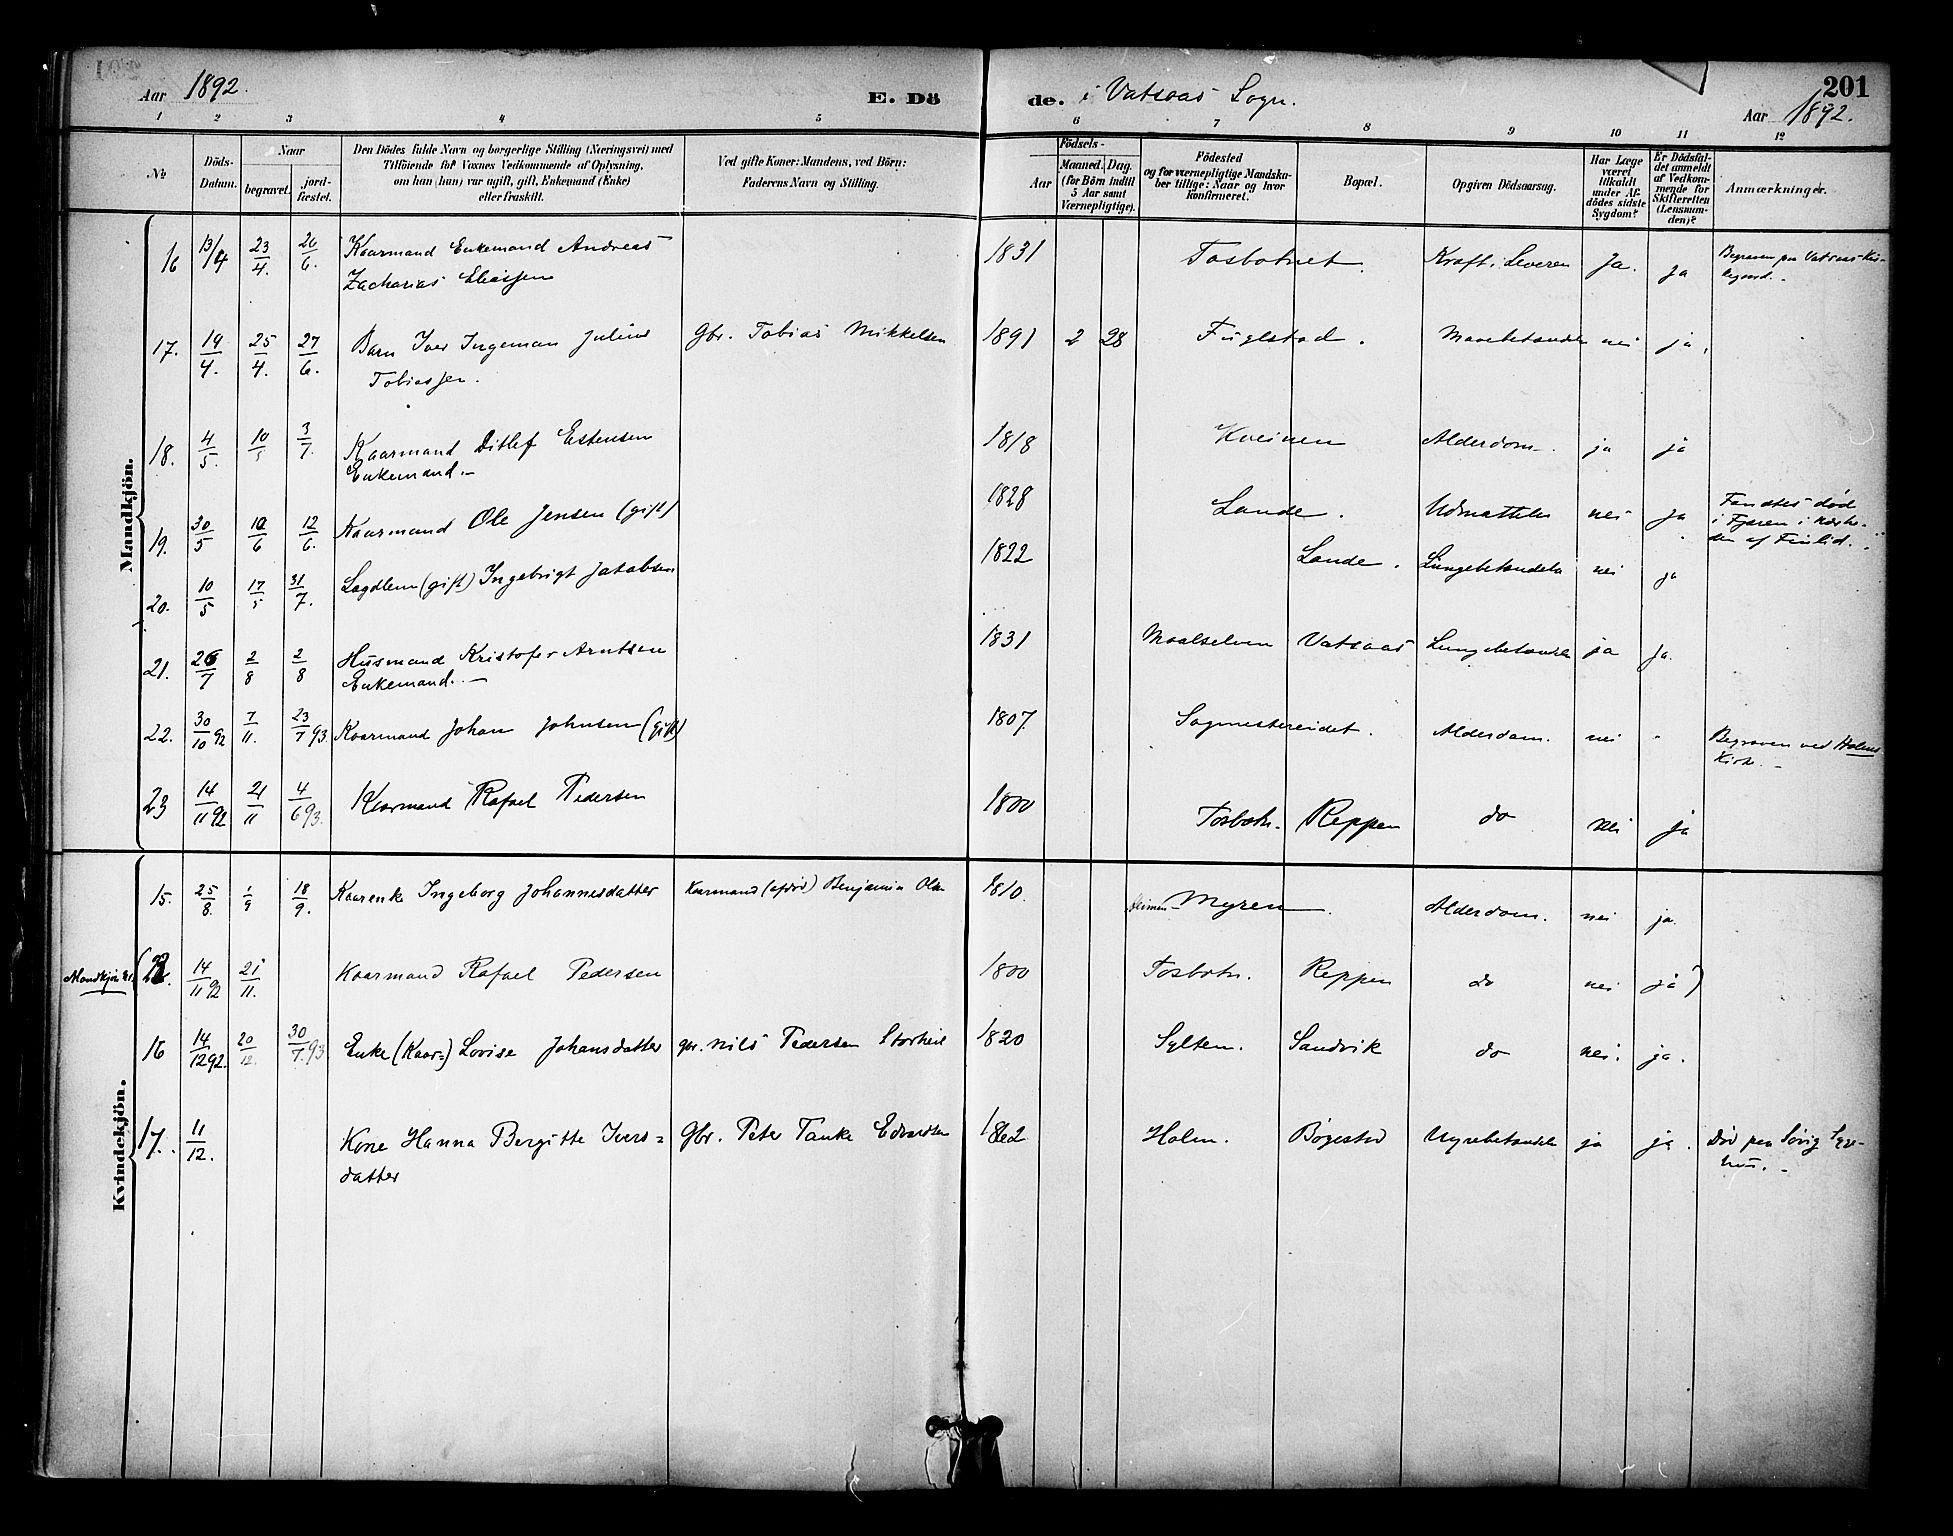 Aar 1892. E. Dö de. i Vatsaas Sogn. 201
Aar 1892.
1 2 3 4 5 6 7 8 9 10 11 12
No
Döds-Datum.
Naar
begravet.
jord-fæstet.
Den Dödes fulde Navn og borgerlige Stilling (Næringsvei) med
Tilföiende for Voxnes Vedkommende af Oplysning,
om han (hun) var ugift, gift, Enkemand (Enke)
eller fraskilt.
Ved gifte Koner: Mandens, ved Börn:
Faderens Navn og Stilling.
Födsels-
Aar
Maaned. Dag.
(for Börn indtil
5 Aar samt
Værnepligtige).
Födested
og for værnepligtige Mandska-
ber tillige: Naar og hvor
konfirmeret.
Bopæl.
Opgiven Dödsaarsag.
Har Læge
været
tilkaldt
under Af-
dödes sidste
Sygdom?
Er Dödsfal-
det anmeldt
af Vedkom-
mende for
Skifteretten
(Lensman-
den)?
Anmærkninger.
Mandkjön.
16 13/4 23/4. 26/6. Kaarmand Enkemand Andreas 1831 Tosbotnet. Kræft i Leveren Ja. ja Begraven paa Vatsaas Kir-
Zacharias Eliassen kegaard.
17. 19/4. 25/4. 27/6. Barn Iver Ingeman Julius Gbr. Tobias Mikkelsen 1891 2 28 Fuglstad. Mavebetændelse nei ja.
Tobiassen.
18. 4/5. 10/5 3/7. Kaarmand Ditlef Estensen 1818 Kveinen Alderdom. ja ja
Enkemand.
19. 30/5 10/6 12/6. Kaarmand Ole Jensen (gift) 1828 Lande. Udmattelse nei ja Fandtes død
i Fjæren i Nærhe-
den af Finlid.
20. 10/5 17/5 31/7. Lægdlem (gift) Ingebrigt Jakobsen 1822 Lande. Lungebetændelse nei ja
21. 26/7 2/8 2/8 Husmand Kristofer Arntsen 1831 Maalselven Vatsaas Lungebetændelse ja ja.
Enkemand.
22. 30/10 92 7/11. 23/7 93 Kaarmand Johan Johnsen (gift) 1807. Sagmestereidet. Alderdom. nei - Begraven ved Holms
Kirke.
23 14/11 92 21/11 4/6 93. Kaarmand Rafael Pedersen 1800 Tosbotn. Reppen do nei ja
Kvindekjön.
15. 25/8. 1/9 18/9. Kaarenke Ingeborg Johannesdatter Kaarmand (afdød) Benjamin Olsen 1810. Myren. Alderdom. nei ja.
Mandkjøn (22. 14/11 92 21/11. Kaarmand Rafael Pedersen 1800 Tosbotn. Reppen do nei ja)
16 14/12 92. 20/12. 30/7. 93 Enke (Kaar=) Lovise Johansdatter gbr. Nils Pedersen Storheil 1820 Sylten. Sandvik do nei. ja.
17. 11/12. Kone Hanna Bergitte Ivers= Gbr. Peter Tanke Edvardsen 1862 Holm. Bøgestad Nyrebetændelse ja ja. Død paa Søvig Syge-
datter hus.